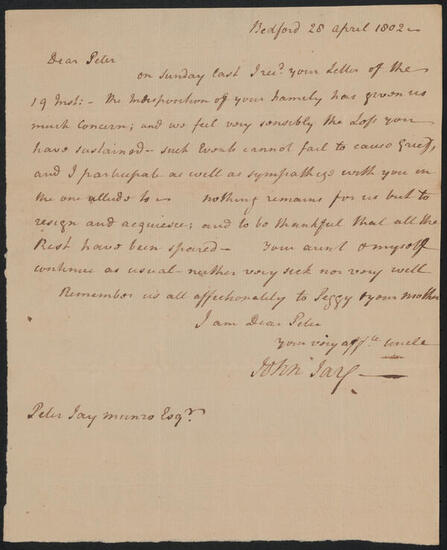 Bedford 28 April 1802
Dear Peter
on Sunday last I recd. your Letter of the
19 Inst: - the Indisposition of your Family has given us
much Concern; and we feel very sensibly the Loss you
have sustained - such Events cannot fail to cause Grief,
and I participate as well as sympathize with you in
the one alluded to - nothing remains for us but to
resign and acquiesce; and to be thankful that all the
Rest have been spared - Your aunt & myself
continue as usual - neither very sick nor very well
Remember us all affectionately to Peggy & your mother
I am Dear Peter
Your very affte. Uncle
John Jay
Peter Jay Munro Esqr.